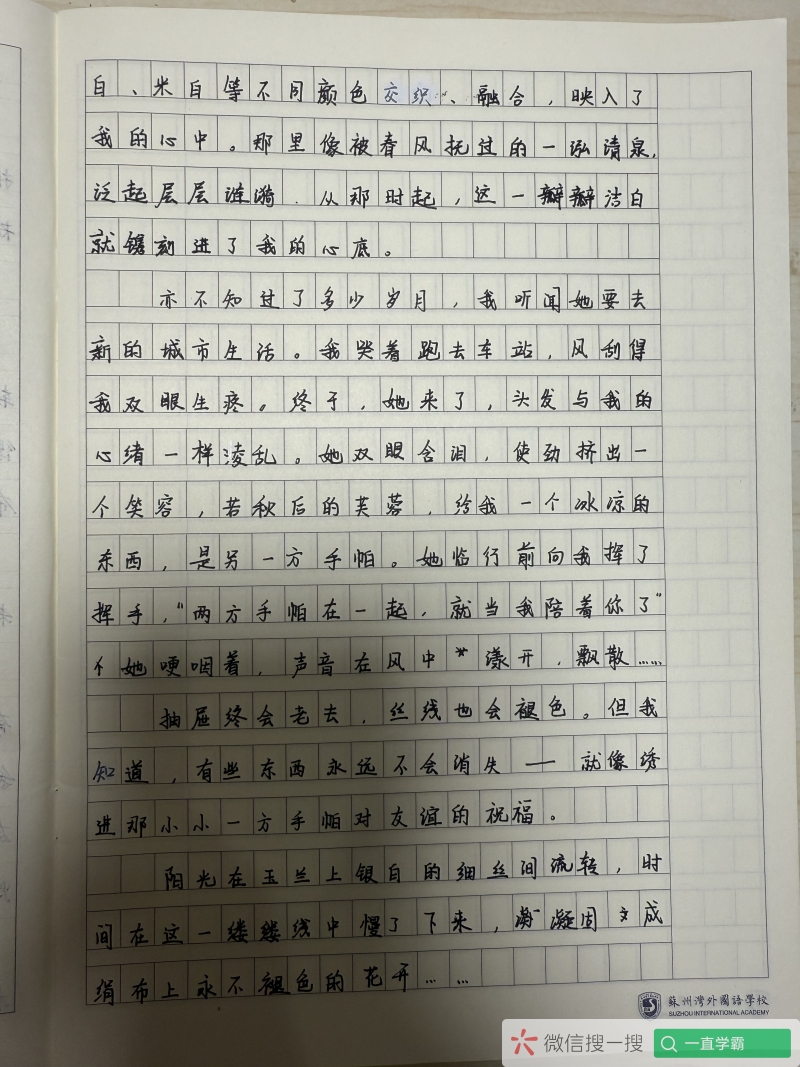 白、米白等不同颜色交织、融合，映入了
我的心中。那里像被春风抚过的一泓清泉，
泛起层层涟漪．从那时起，这一瓣瓣洁白
就镌刻进了我的心底。
亦不知过了多少岁月，我听闻她要去
新的城市生活。我哭着跑去车站，风刮得
我双眼生疼。终于，她来了，头发与我的
心绪一样凌乱。她双眼含泪，使劲挤出一
个笑容，若秋后的芙蓉，给我一个冰凉的
东西，是另一方手帕。她临行前向我挥了
挥手，“两方手帕在一起，就当我陪着你了”
她哽咽着，声音在风中漾开，飘散……
抽屉终会老去，丝线也会褪色。但我
知道，有些东西永远不会消失——就像绣
进那小小一方手帕对友谊的祝福。
阳光在玉兰上银白的细丝间流转，时
间在这一缕缕线中慢了下来，凝固成
绢布上永不褪色的花开……
蘇州灣外國語學校
SUZHOU INTERNATIONAL ACADEMY
微信搜一搜
一直学霸